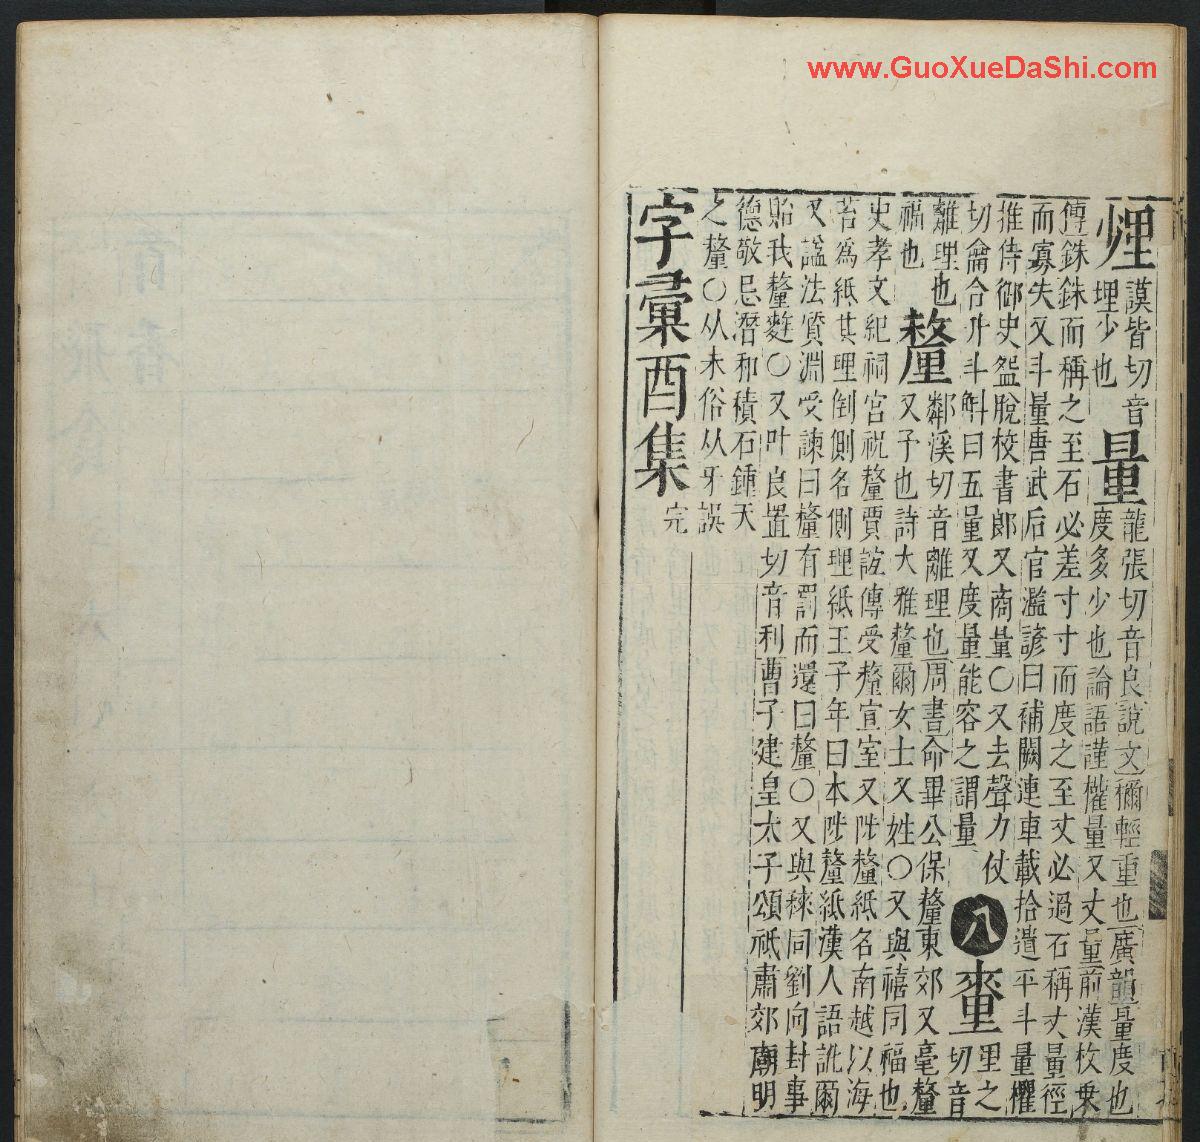 謨皆切音
埋少也
量
龍張切音良說文稱輕重也廣韻量度也
度多少也論語謹權量又丈量前漢枚乗
傳銖銖而稱之至石必差寸寸而度之至丈必過石稱丈量徑
而寡失又斗量唐武后官濫諺曰補闕連車載拾遺平斗量欋
推侍御史盌脫校書郎又商量〇又去聲力仗
切龠合升斗斛曰五量又度量能容之謂量
八
里之
切音
離理也
福也
釐
鄰溪切音離理也周書命畢公保釐東郊又毫釐
又予也詩大雅釐爾女士又姓〇又與禧同福也
史孝文紀祠宮祝釐賈誼傳受釐宣室又陟釐紙名南越以海
苔爲紙其理倒側名側理紙王子年曰本陟釐紙漢人語訛爾
又諡法質淵受諫曰釐有罰而還曰釐〇又與䅘同劉向封事
貽我釐麰〇又叶良置切音利曹子建皇太子頌祇肅郊廟明
德敬忌潛和積石鍾天
之釐〇从未俗从牙誤
字彙酉集完
www.GuoXueDaShi.com